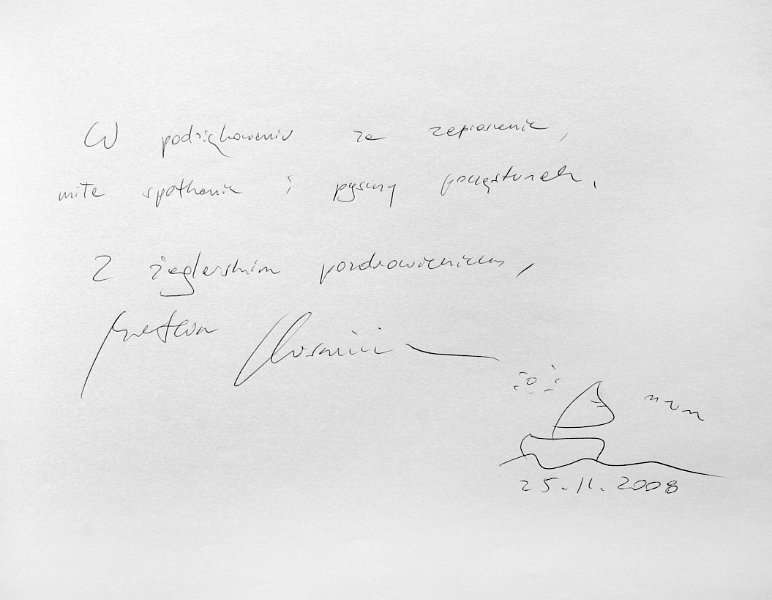 W podziękowaniu za zaproszenie,
miłe spotkanie i pyszny poczęstunek.
Z żeglarskim pozdrowieniem,
25.11.2008